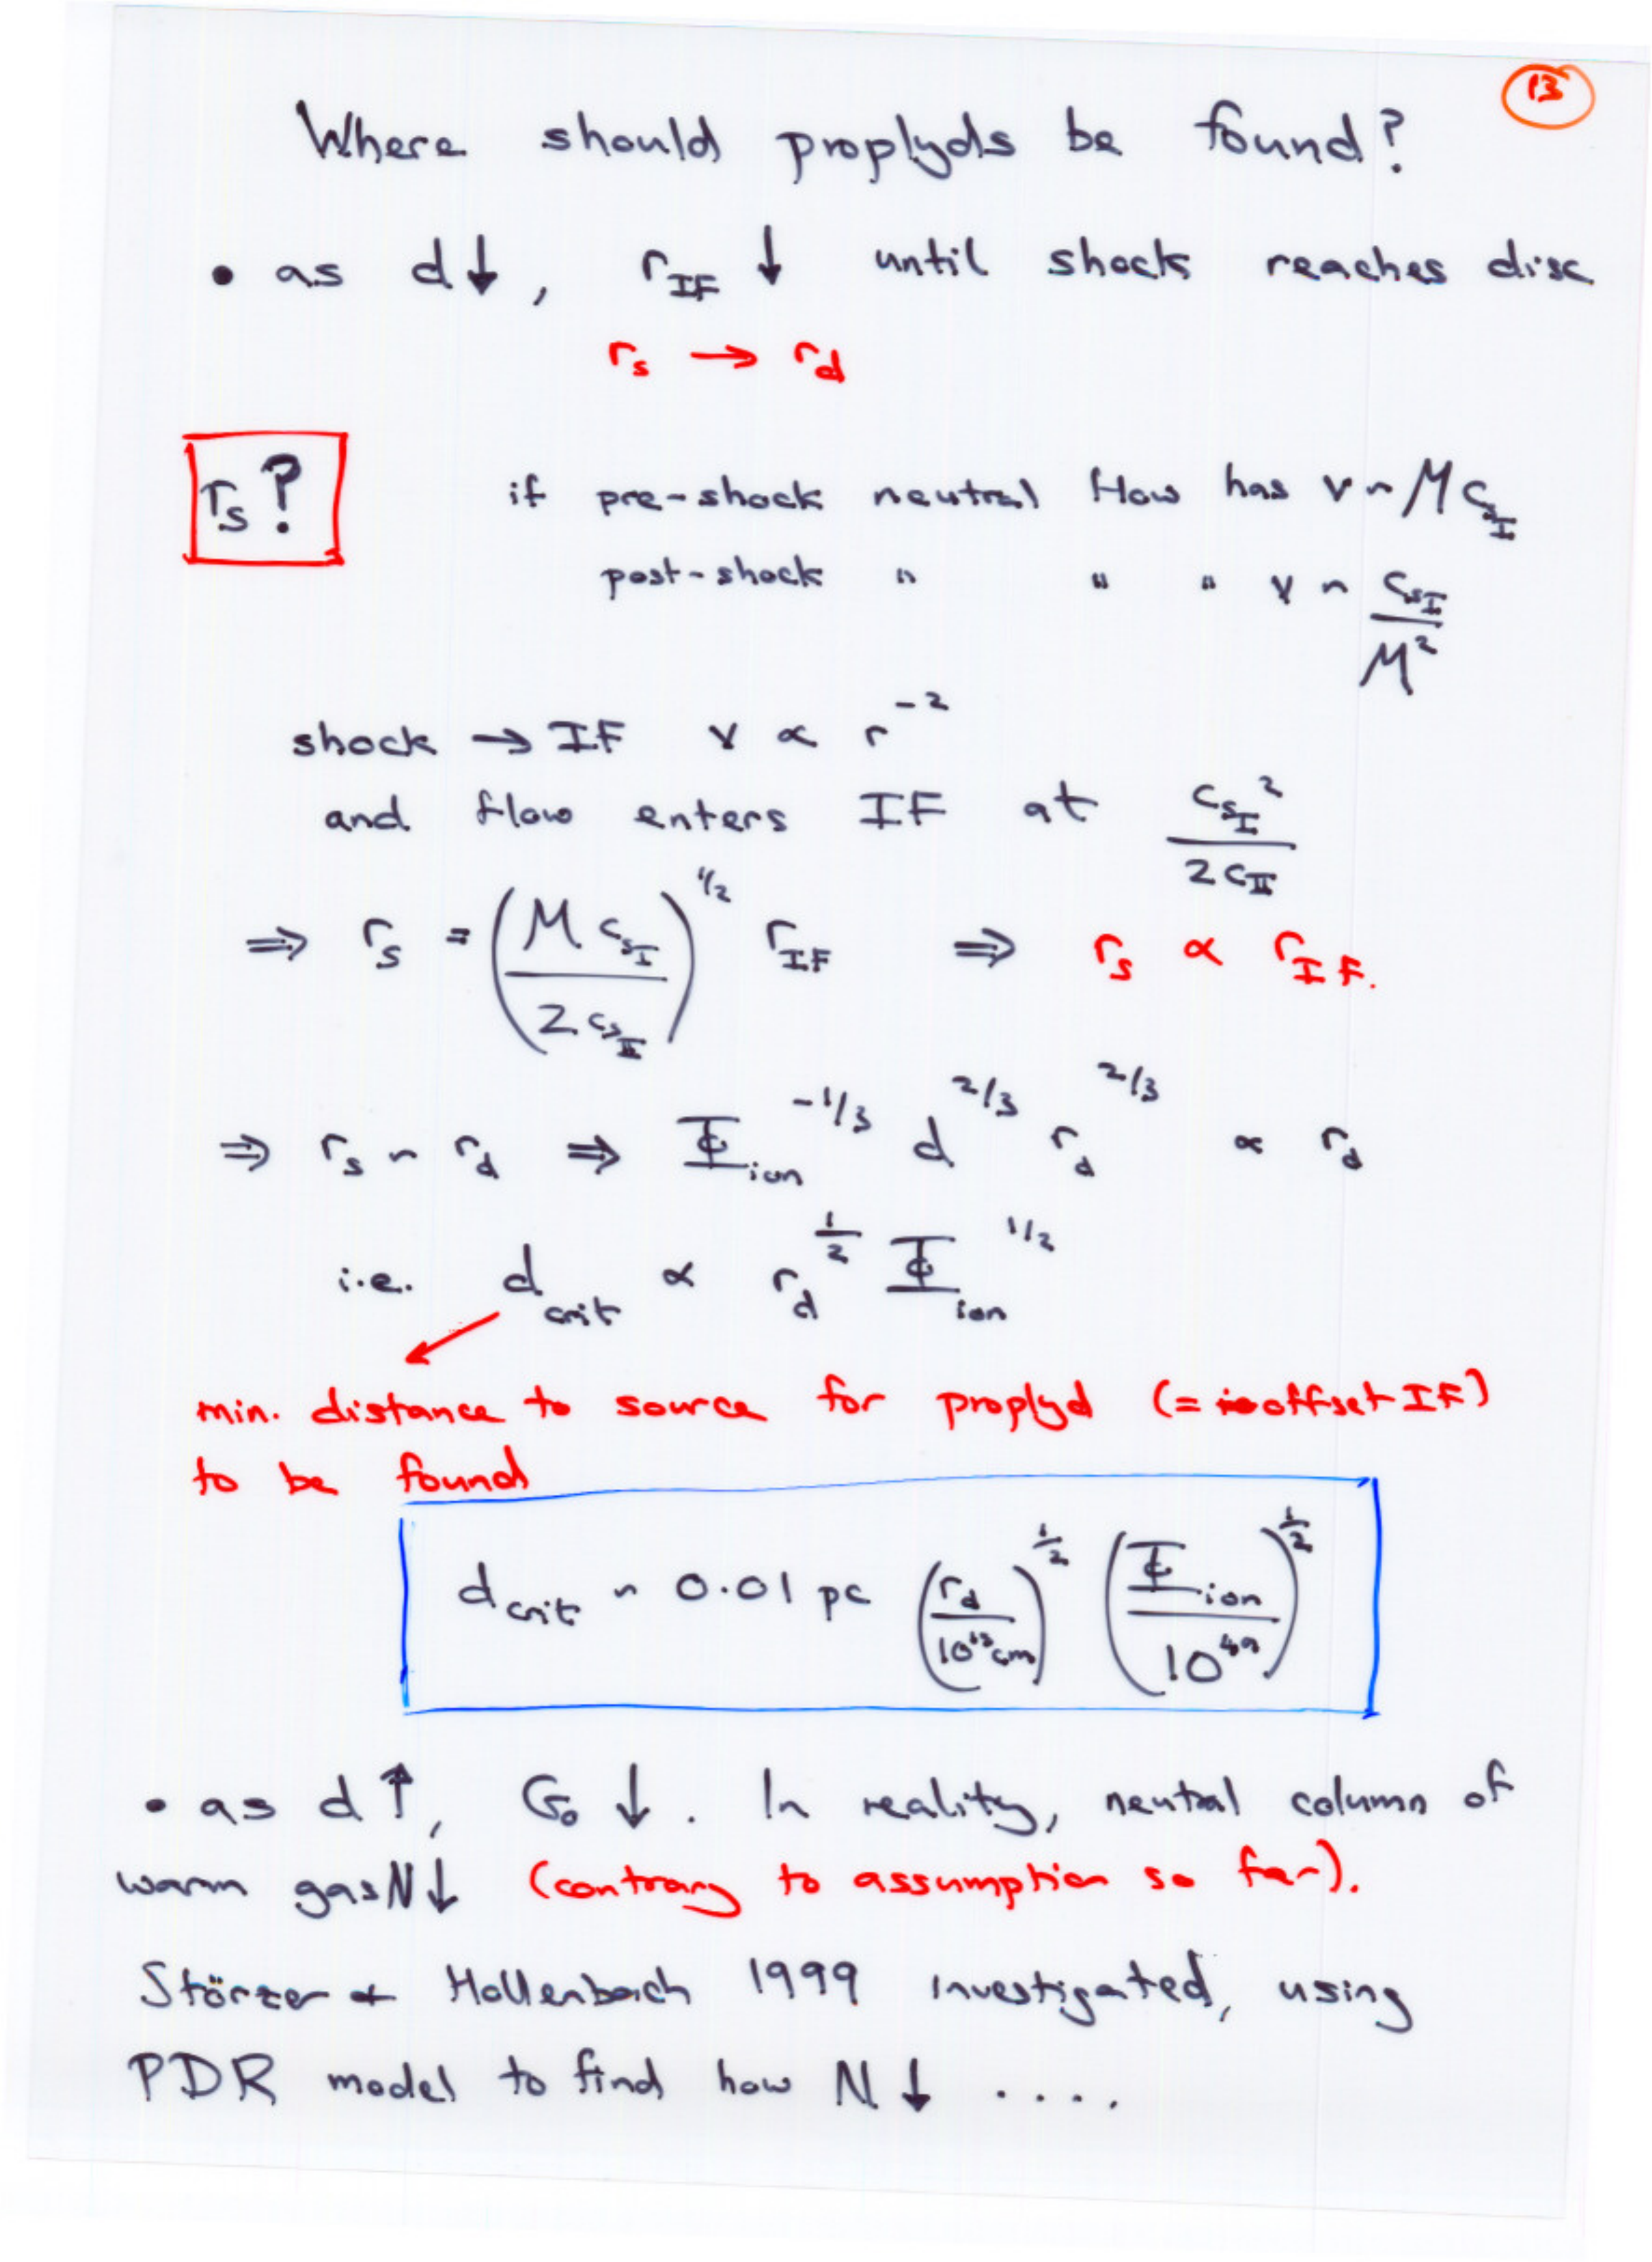 13
Where should proplyds be found?
• as d↓, r_IF ↓ until shock reaches disc
r_s → r_d
r_s? if pre-shock neutral flow has v ~ M c_{s_I}
post-shock " " " v ~ c_{s_I} / M²
shock → IF v ∝ r^{-2}
and flow enters IF at c_{s_I}² / 2 c_{II}
⇒ r_s = (M c_{s_I} / 2 c_{s_II})^{1/2} r_IF ⇒ r_s ∝ r_IF.
⇒ r_s ~ r_d ⇒ Φ_ion^{-1/3} d^{2/3} r_d^{2/3} ∝ r_d
i.e. d_crit ∝ r_d^{1/2} Φ_ion^{1/2}
min. distance to source for proplyd (= offset IF)
to be found
d_crit ~ 0.01 pc (r_d / 10^{15} cm)^{1/2} (Φ_ion / 10^{49})^{1/2}
• as d↑, G₀ ↓. In reality, neutral column of
warm gas N↓ (contrary to assumption so far).
Störzer + Hollenbach 1999 investigated, using
PDR model to find how N ↓ ....